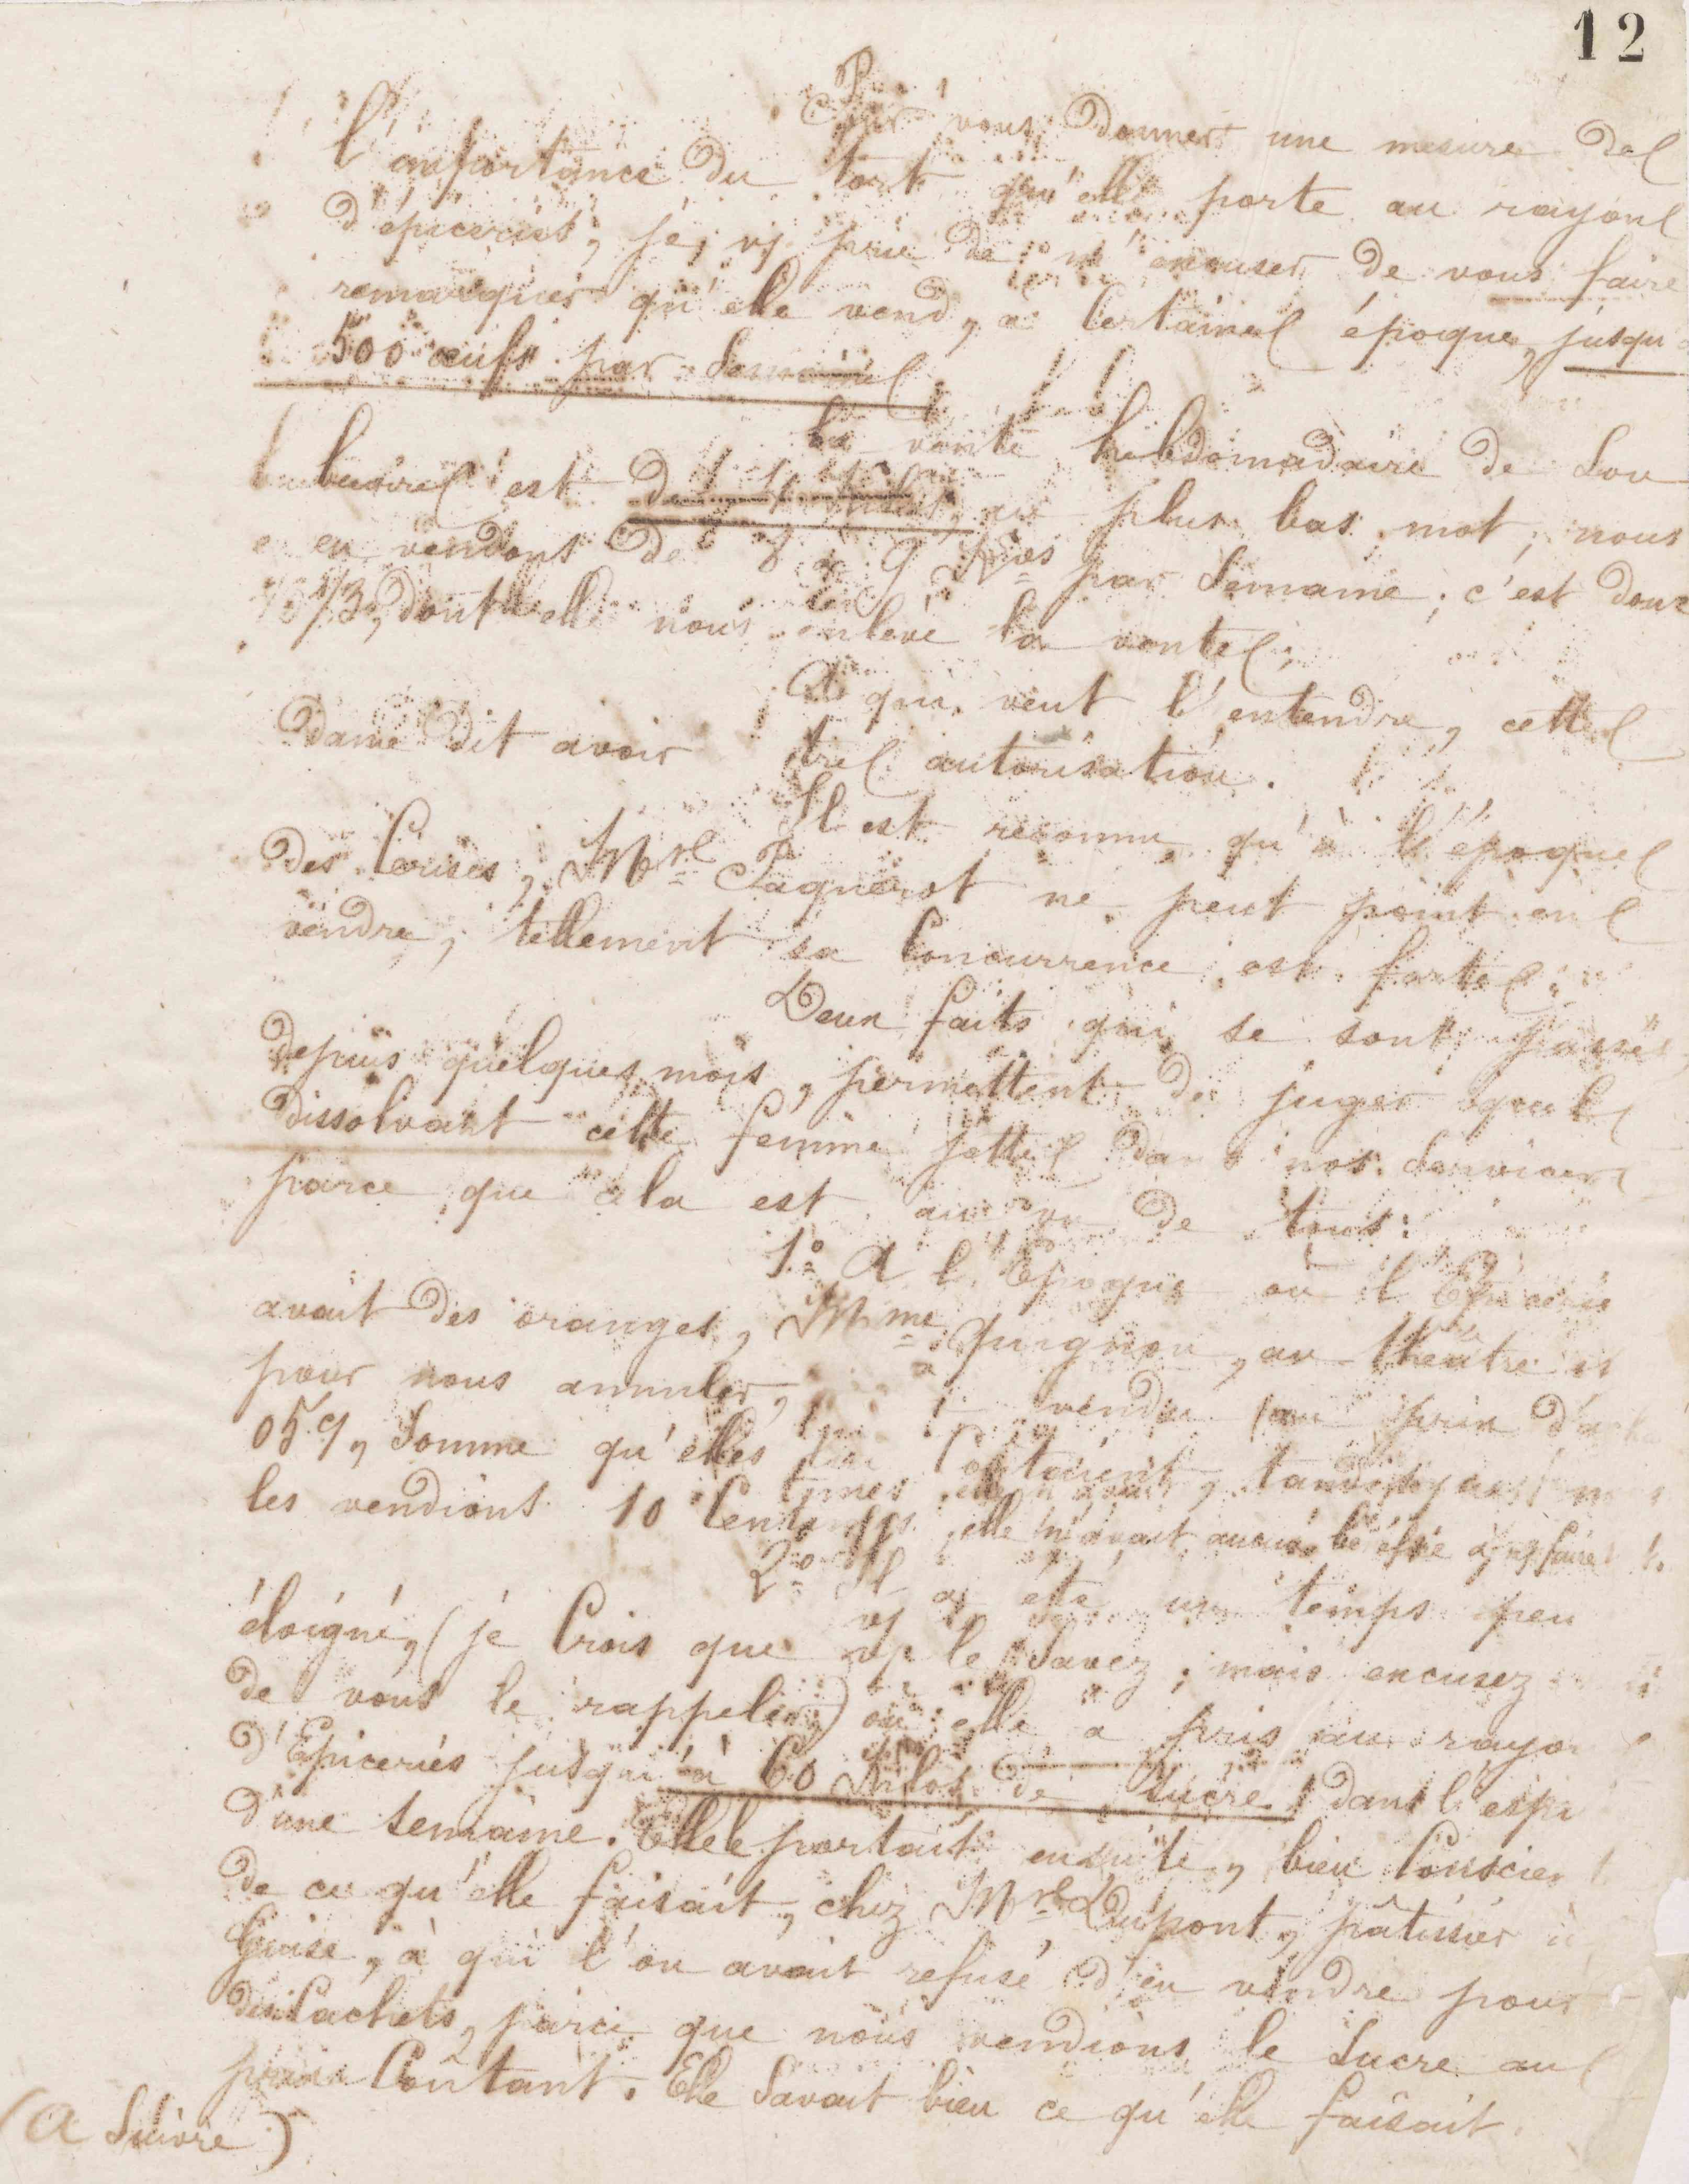 12
Pour vous donner une mesure de
l'importance du tort qu'elle porte au rayon
d'épiceries, je vs prie de m'excuser de vous faire
remarquer qu'elle vend, à certaine époque, jusqu'à
500 œufs par semaine
La vente hebdomadaire de Son
beurre est de plus bas mot, nous
en vendons de 8 à 9 Kos par Semaine; c'est donc
1/3, dont elle nous enlève la vente.
A qui veut l'entendre, cette
dame dit avoir autorisation.
Il est reconnu, qu'à l'époque
des Cerises, Mr Paquerot ne peut point en
vendre, tellement sa Concurrence est forte.
Deux faits qui se sont passés
depuis quelques mois, permettent de juger quel
dissolvant cette femme jette dans nos Services
parce que cela est au vu de tous:
1° A l'Epoque où l'Epicerie
avait des oranges, Mme Quignon, au théâtre
pour nous annuler, vendu au prix d'achat
05 9, Somme qu'elles lui Coutaient, tandis que nous
les vendions 10 Centimes, elle n'avait aucun bénéfice
2° Il a été un temps peu
éloigné, (je Crois que vs le Savez, mais excusez
de vous le rappeler) où elle a pris au rayon
d'Epiceries jusqu'à 60 Kilos de sucre dans l'
d'une semaine. Elle le portait ensuite, bien
de ce qu'elle faisait, chez Mr Dupont, pâtissier à
Guise, à qui l'on avait refusé d'en vendre pour
des Cachets, parce que nous vendions le Sucre au
prix Coûtant. Elle Savait bien ce qu'elle faisait.
(A Suivre)